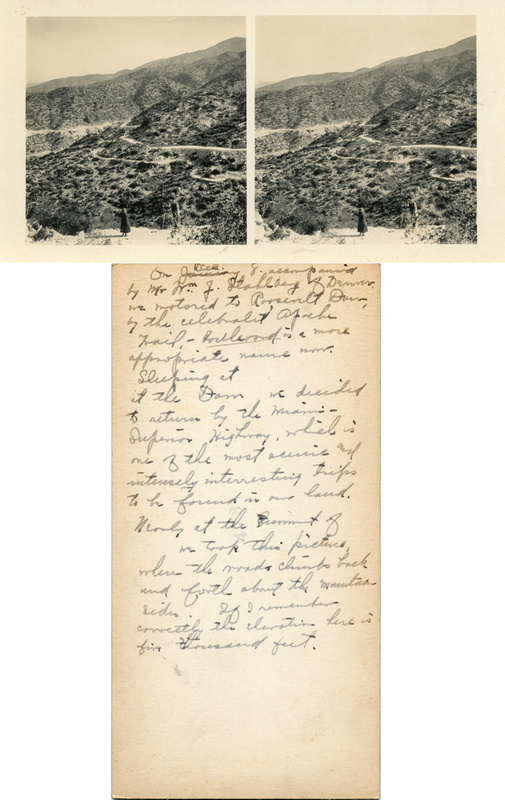 Dec.
On January 8. accompanied
by Mr Wm. J. Stahlberg of Denver,
we motored to Roosevelt Dam,
by the celebrated Apache
Trail, - Boulevard is a more
appropriate name now.
Sleeping at
at the Dam we decided
to return by the Miami -
Superior Highway, which is
one of the most scenic and
intensely interresting trips
to be found in our land.
Nearly at the Summit of
we took this picture,
where the roads climbs back
and forth about the mountain
sides. If I remember
correctly the elevation here is
five thousand feet.